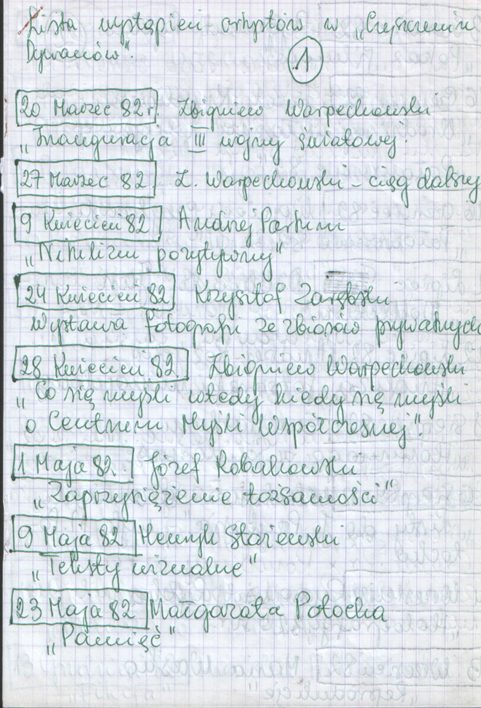 Lista wystąpień artystów w „Czyszczeniu
Dywanów".
1
20 Marzec 82 r. Zbigniew Warpechowski
„Inauguracja III wojny światowej.
27 Marzec 82 Z. Warpechowski – ciąg dalszy
9 Kwiecień 82 Andrzej Partum
„Nihilizm pozytywny"
24 Kwiecień 82 Krzysztof Zarębski
Wystawa fotografii ze zbiorów prywatnych
28 Kwiecień 82. Zbigniew Warpechowski
„Co się myśli wtedy kiedy się myśli
o Centrum Myśli Współczesnej".
1 Maja 82. Józef Robakowski
„Zaprzysiężenie tożsamości"
9 Maja 82 Henryk Stażewski
„Teksty wizualne"
23 Maja 82 Małgorzata Potocka
„Pamięć"